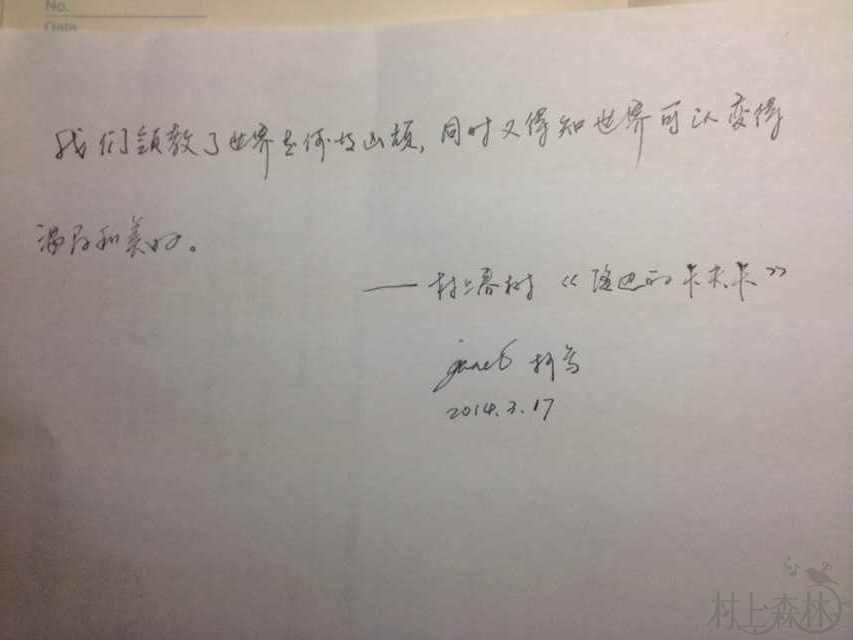 No.
Date
我们領教了世界是何等凶顽，同时又得知世界可以变得
温存和美好。
—— 村上春树《海边的卡夫卡》
2014.3.17
村上森林